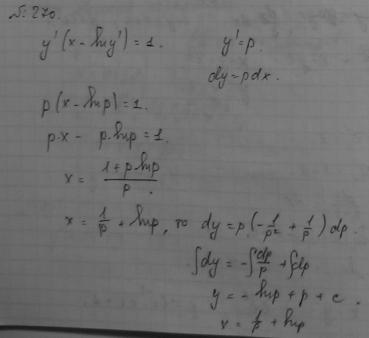 № 270.
y'(x - ln y') = 1. y' = p.
dy = p dx.
p(x - ln p) = 1.
p·x - p·ln p = 1.
x = (1 + p·ln p)/p.
x = 1/p + ln p, то dy = p·(-1/p² + 1/p) dp.
∫dy = -∫dp/p + ∫dp
y = -ln p + p + c.
x = 1/p + ln p